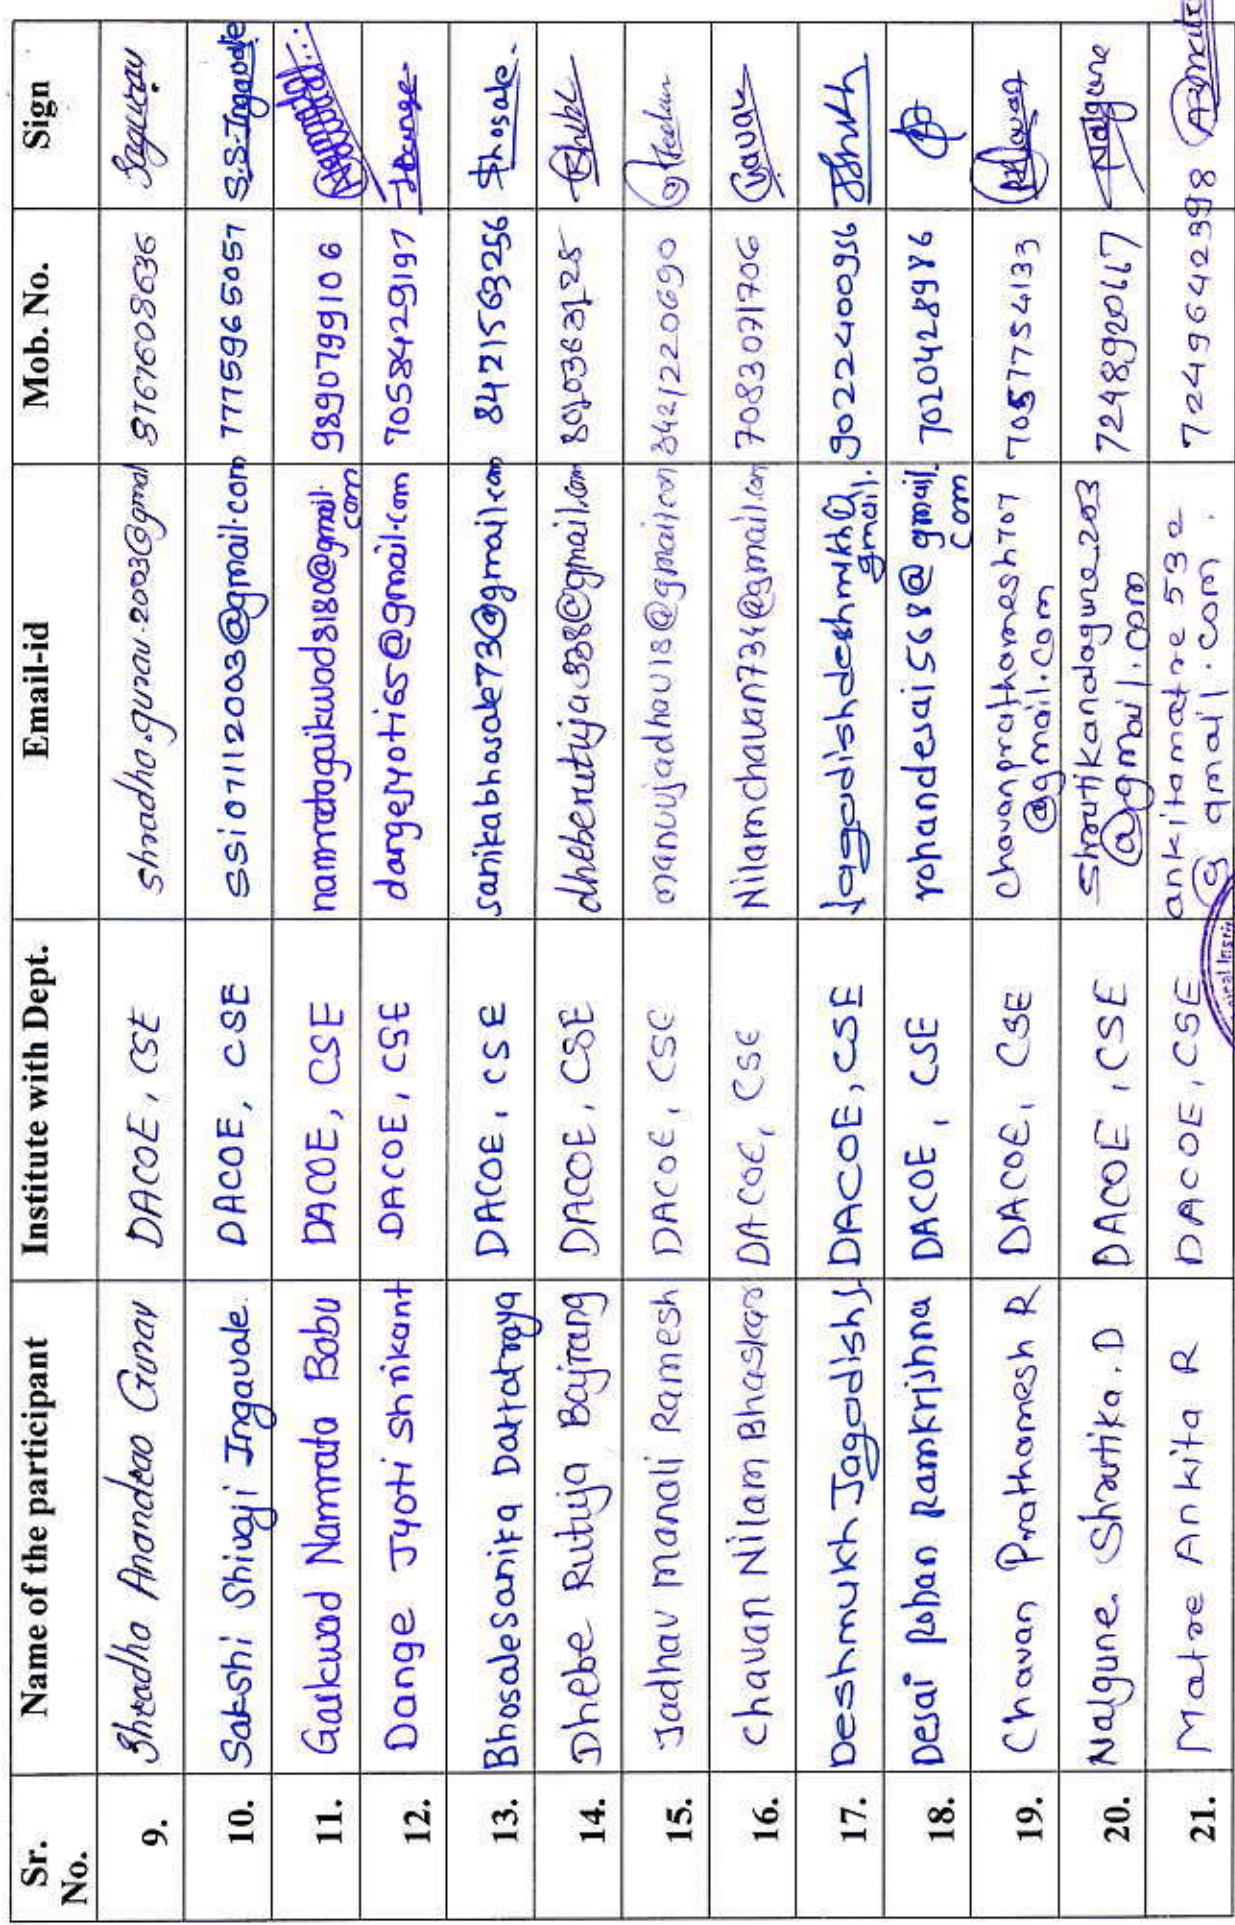 Sr. No. Name of the participant Institute with Dept. Email-id Mob. No. Sign
9. Shradha Anandrao Gurav DACOE, CSE shradha.gurav.2003@gmail 8767608636 Sagurav
10. Sakshi Shivaji Ingavale. DACOE, CSE ssi07112003@gmail.com 7775965057 S.S.Ingavale
11. Gaikwad Namrata Babu DACOE, CSE namratagaikwad8180@gmail.com 9890799106
12. Dange Jyoti Shrikant DACOE, CSE dangejyoti65@gmail.com 7058429197 JDange
13. Bhosale Sanika Dattatraya DACOE, CSE sanikabhosale73@gmail.com 8421563256 Bhosale.
14. Dhebe Rutuja Bajrang DACOE, CSE dheberutuja338@gmail.com
15. Jadhav Manali Ramesh DACOE, CSE
16. Chavan Nilam Bhaskar DACOE, CSE Nilamchavan734@gmail.com 7083071706 Chavan
17. Deshmukh Jagadish J DACOE, CSE jagadishdeshmukh@gmail. 9022400956
18. Desai Rohan Ramkrishna DACOE, CSE rohandesai568@gmail.com 7020428986
19. Chavan Prathamesh R DACOE, CSE chavanprathamesh707
@gmail.com 7057754133
20. Nalgune Shrutika.D DACOE, CSE
@gmail.com 7248920667 Nalgune
21. Matre Ankita R DACOE, CSE ankitamatre532
@gmail.com. 7249642998